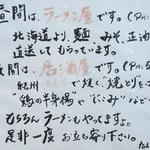 昼間は、ラーメン屋です。(PM:
北海道より、麺 みそ 正油
直送して もらっています。
夜間は、居酒屋です。(PM:5
紀州 で焼く、焼とりに
"鶏の半身揚" や "
もちろん ラーメンもやってます。
是非一度 お立ち寄り下さい。